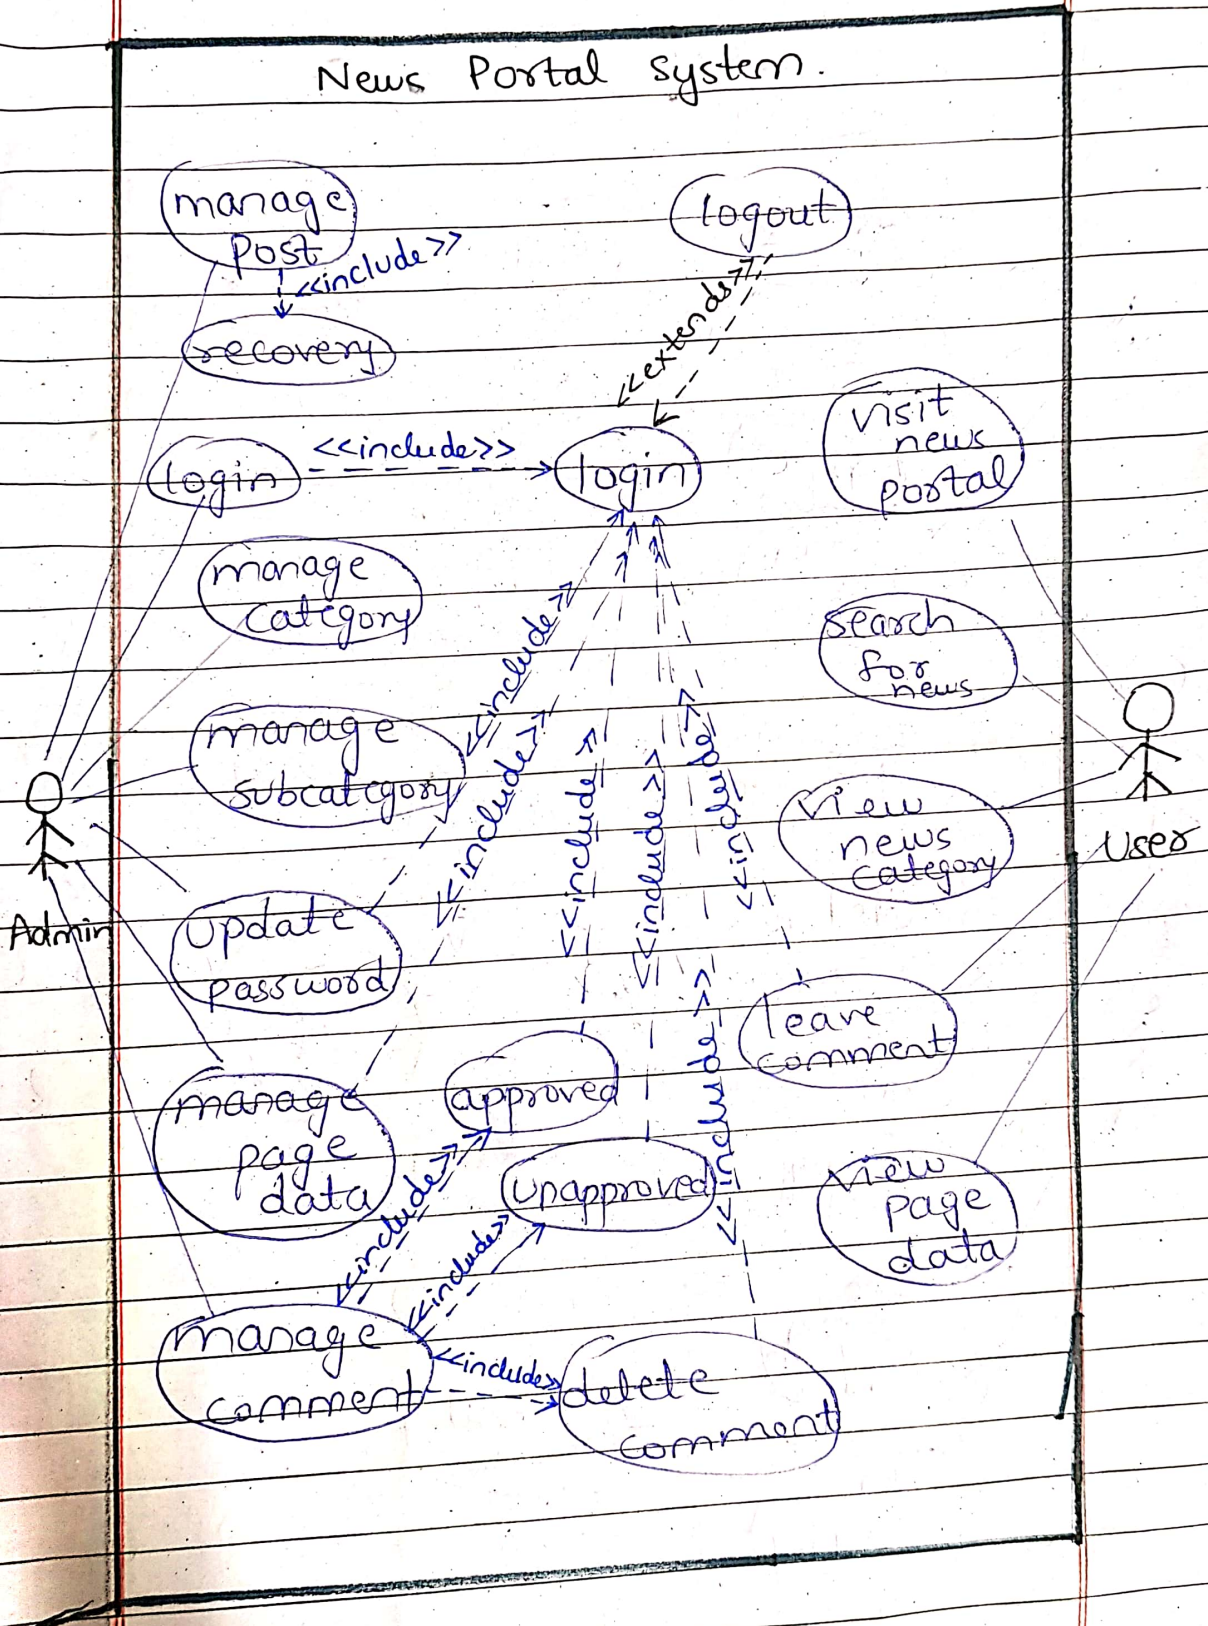 News Portal System.
manage
post
<<include>>
recovery
logout
<<extends>>
login
<<include>>
login
visit
news
portal
manage
category
search
for
news
manage
subcategory
<<include>>
<<include>>
<<include>>
<<include>>
<<include>>
view
news
category
User
Admin
update
password
leave
comment
<<include>>
manage
page
data
approved
unapproved
view
page
data
<<include>>
<<include>>
manage
comment
<<include>>
delete
comment